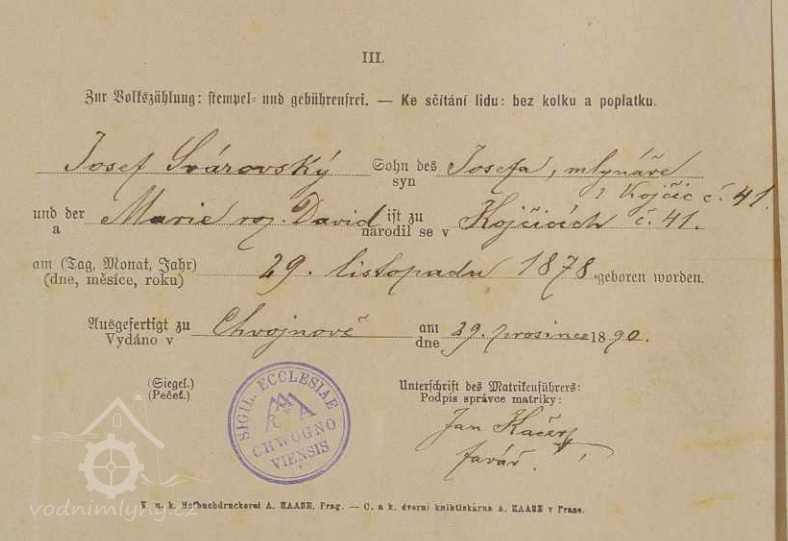 III.
Zur Volkszählung: stempel- und gebührenfrei. — Ke sčítání lidu: bez kolku a poplatku.
Josef Svárovský Sohn des Josefa, mlynáře
syn
z Kojčic č. 41.
und der Marie roz. David ist zu Kojčicích č. 41.
a narodil se v
am (Tag, Monat, Jahr) 29. listopadu 1878 geboren worden.
(dne, měsíce, roku)
Ausgefertigt zu Chvojnově am 29. prosince 1890.
Vydáno v dne
(Siegel.) Unterschrift des Matrikenführers:
(Pečeť.) Podpis správce matriky:
SIGIL. ECCLESIAE
CHWOGNO
VIENSIS
Jan
farář.
vodnimlyny.cz
K. u. k. Hofbuchdruckerei A. HAASE, Prag. — C. a k. dvorní knihtiskárna A. HAASE v Praze.